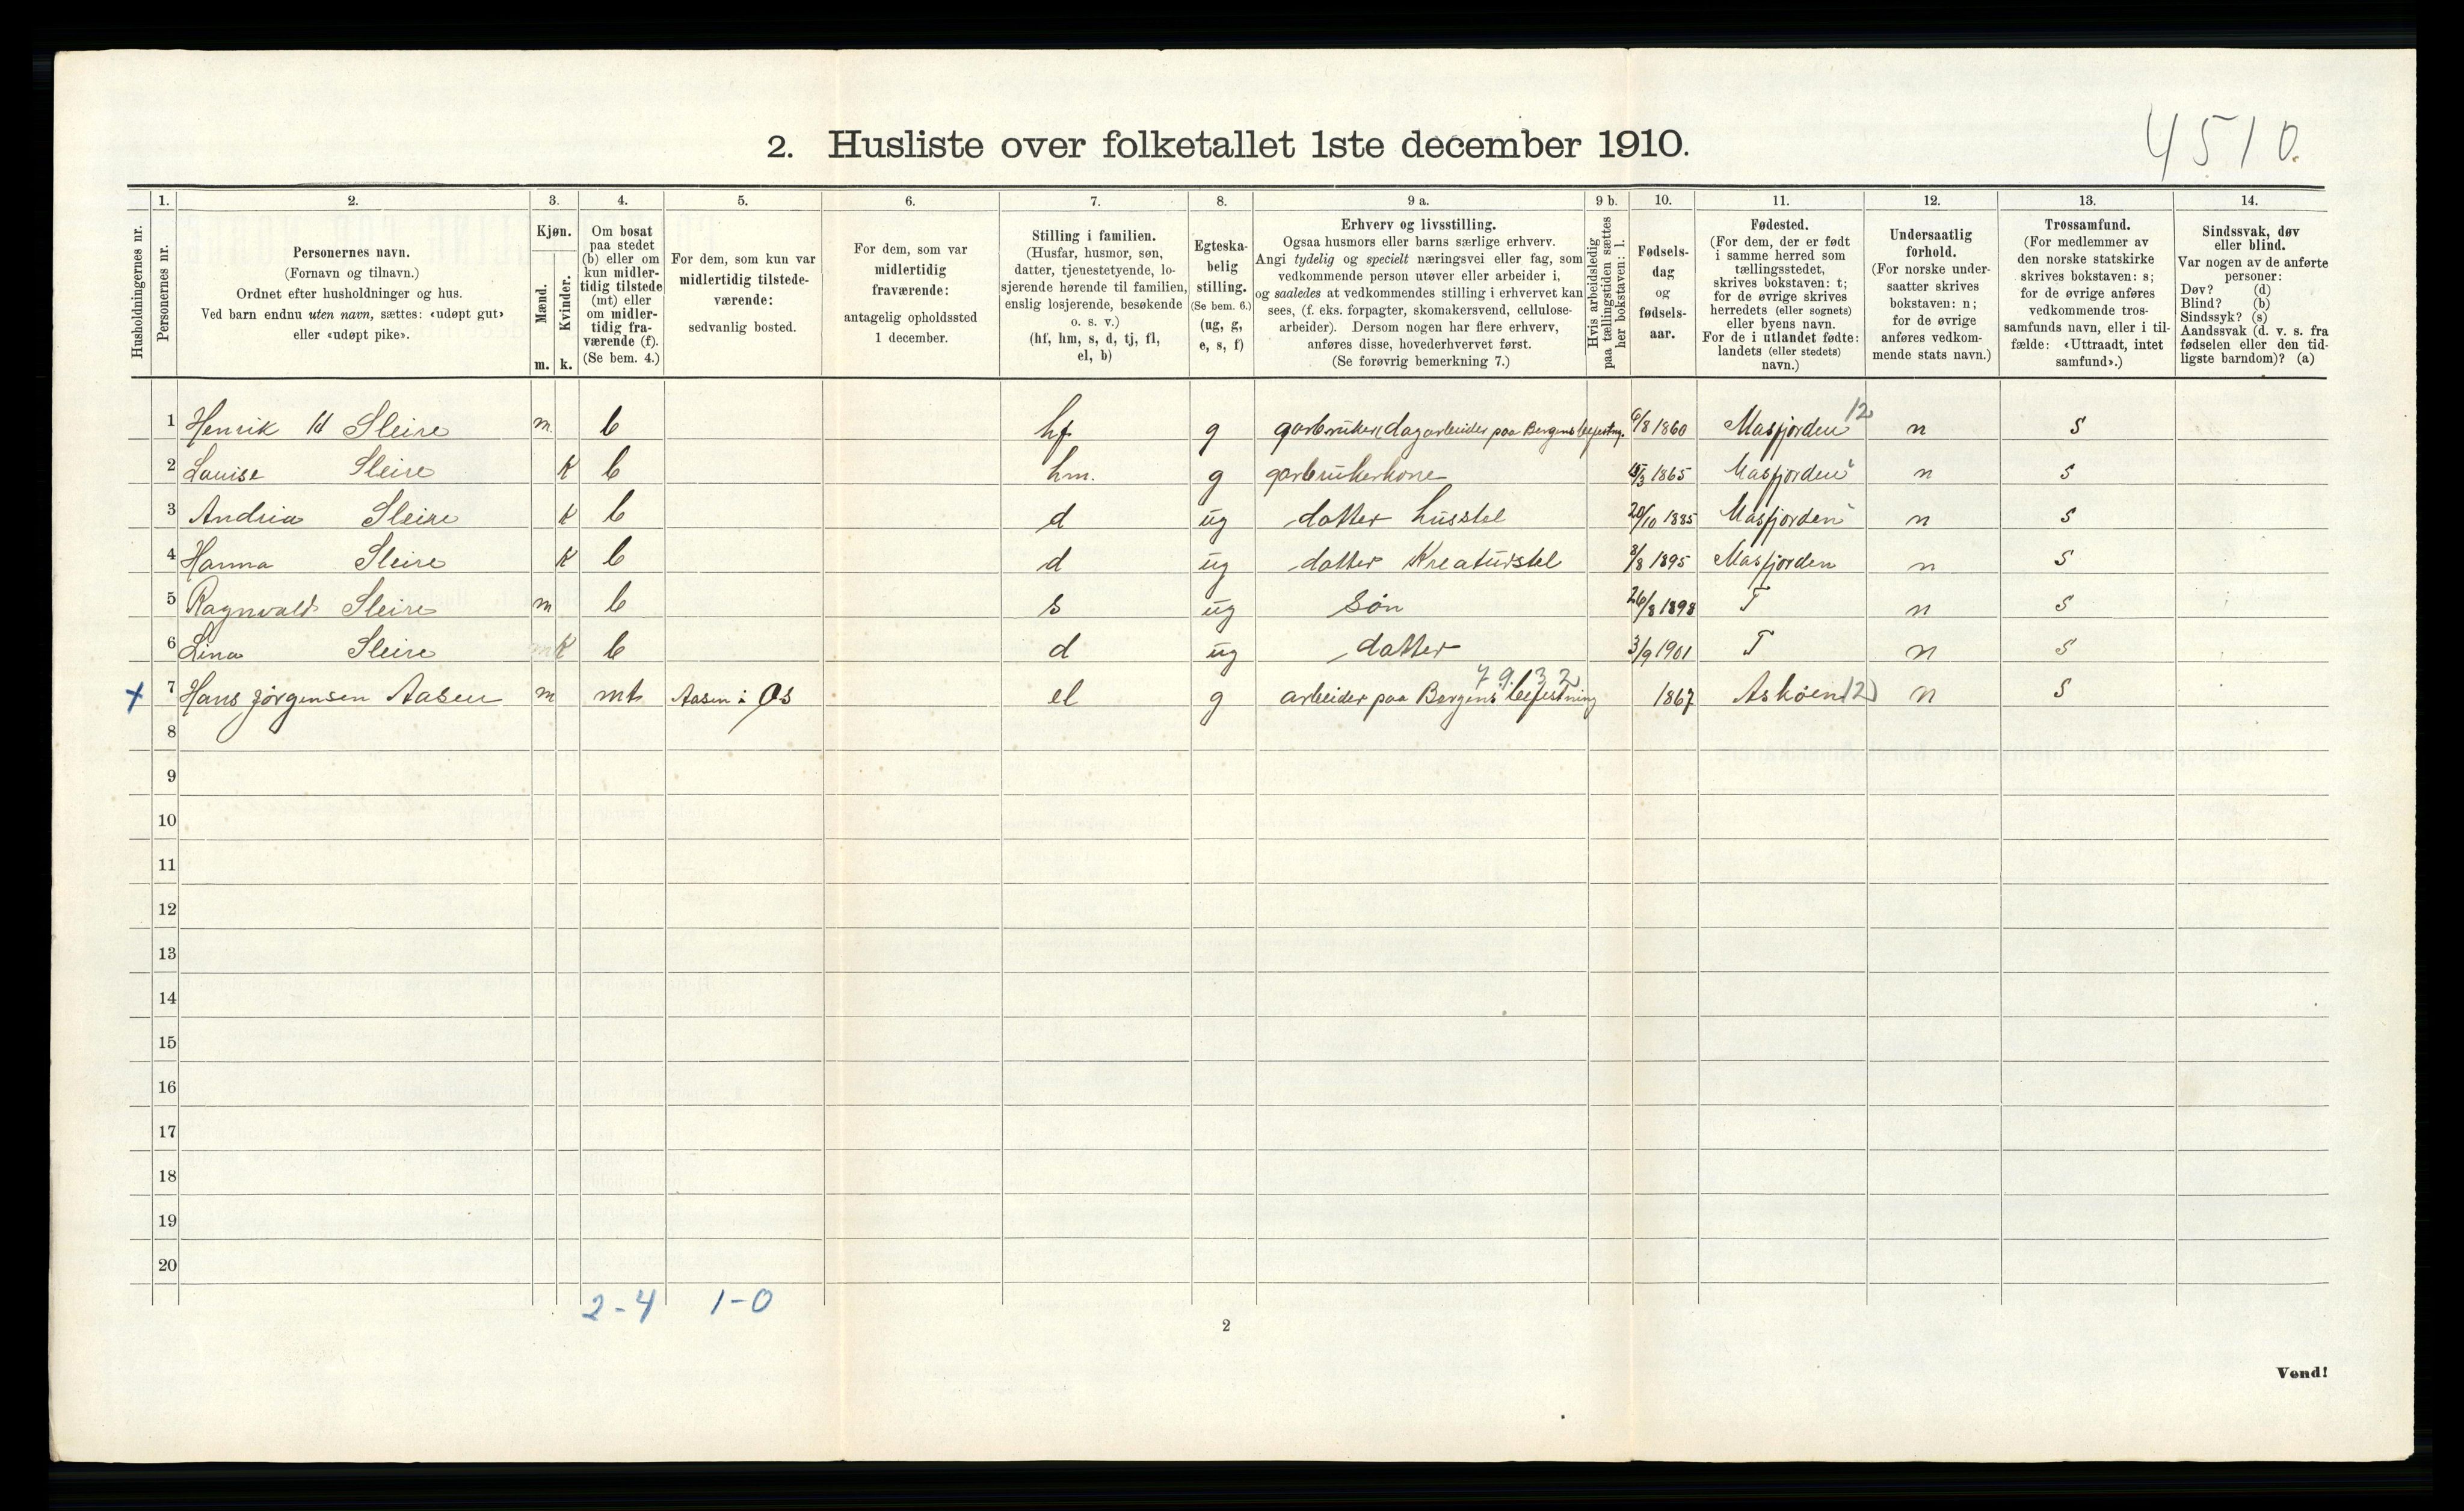 4510.
2. Husliste over folketallet 1ste december 1910.
Husholdningernes nr.
1.
Personernes nr.
2.
Personernes navn.
(Fornavn og tilnavn.)
Ordnet efter husholdninger og hus.
Ved barn endnu uten navn, sættes: «udøpt gut»
eller «udøpt pike».
3.
Kjøn.
Mænd.
Kvinder.
m. k.
4.
Om bosat
paa stedet
(b) eller om
kun midler-
tidig tilstede
(mt) eller
om midler-
tidig fra-
værende (f).
(Se bem. 4.)
5.
For dem, som kun var
midlertidig tilstede-
værende:
sedvanlig bosted.
6.
For dem, som var
midlertidig
fraværende:
antagelig opholdssted
1 december.
7.
Stilling i familien.
(Husfar, husmor, søn,
datter, tjenestetyende, lo-
sjerende hørende til familien,
enslig losjerende, besøkende
o. s. v.)
(hf, hm, s, d, tj, fl,
el, b)
8.
Egteska-
belig
stilling.
(Se bem. 6.)
(ug, g,
e, s, f)
9 a.
Erhverv og livsstilling.
Ogsaa husmors eller barns særlige erhverv.
Angi tydelig og specielt næringsvei eller fag, som
vedkommende person utøver eller arbeider i,
og saaledes at vedkommendes stilling i erhvervet kan
sees, (f. eks. forpagter, skomakersvend, cellulose-
arbeider). Dersom nogen har flere erhverv,
anføres disse, hovederhvervet først.
(Se forøvrig bemerkning 7.)
9 b.
Hvis arbeidsledig
paa tællingstiden sættes
her bokstaven: l.
10.
Fødsels-
dag
og
fødsels-
aar.
11.
Fødested.
(For dem, der er født
i samme herred som
tællingsstedet,
skrives bokstaven: t;
for de øvrige skrives
herredets (eller sognets)
eller byens navn.
For de i utlandet fødte:
landets (eller stedets)
navn.)
12.
Undersaatlig
forhold.
(For norske under-
saatter skrives
bokstaven: n;
for de øvrige
anføres vedkom-
mende stats navn.)
13.
Trossamfund.
(For medlemmer av
den norske statskirke
skrives bokstaven: s;
for de øvrige anføres
vedkommende tros-
samfunds navn, eller i til-
fælde: «Uttraadt, intet
samfund».)
14.
Sindssvak, døv
eller blind.
Var nogen av de anførte
personer:
Døv? (d)
Blind? (b)
Sindssyk? (s)
Aandssvak (d. v. s. fra
fødselen eller den tid-
ligste barndom)? (a)
1 Henrik Sleire m. b hf g garbruker, dagarbeider paa Bergens befestng. 6/8 1860 Masfjorden 12 n s
2 Lauise Sleire k b hm. g garbrukerkone 1865 Masfjorden n s
3 Andria Sleire k b d ug datter husstel 20/10 1885 Masfjorden n s
4 Hanna Sleire k b d ug datter Kreaturstel 8/8 1895 Masfjorden n s
5 Ragnvald Sleire m b s ug søn 26/8 1898 T n s
6 Lina Sleire k b d ug datter 3/9 1901 T n s
79.32
x 7 Hans Jørgensen Aasen m mt Aasen i Os el g arbeider paa Bergens befestning 1867 Askøen 12 n s
8
9
10
11
12
13
14
15
16
17
18
19
20
2-4 1-0
2
Vend!